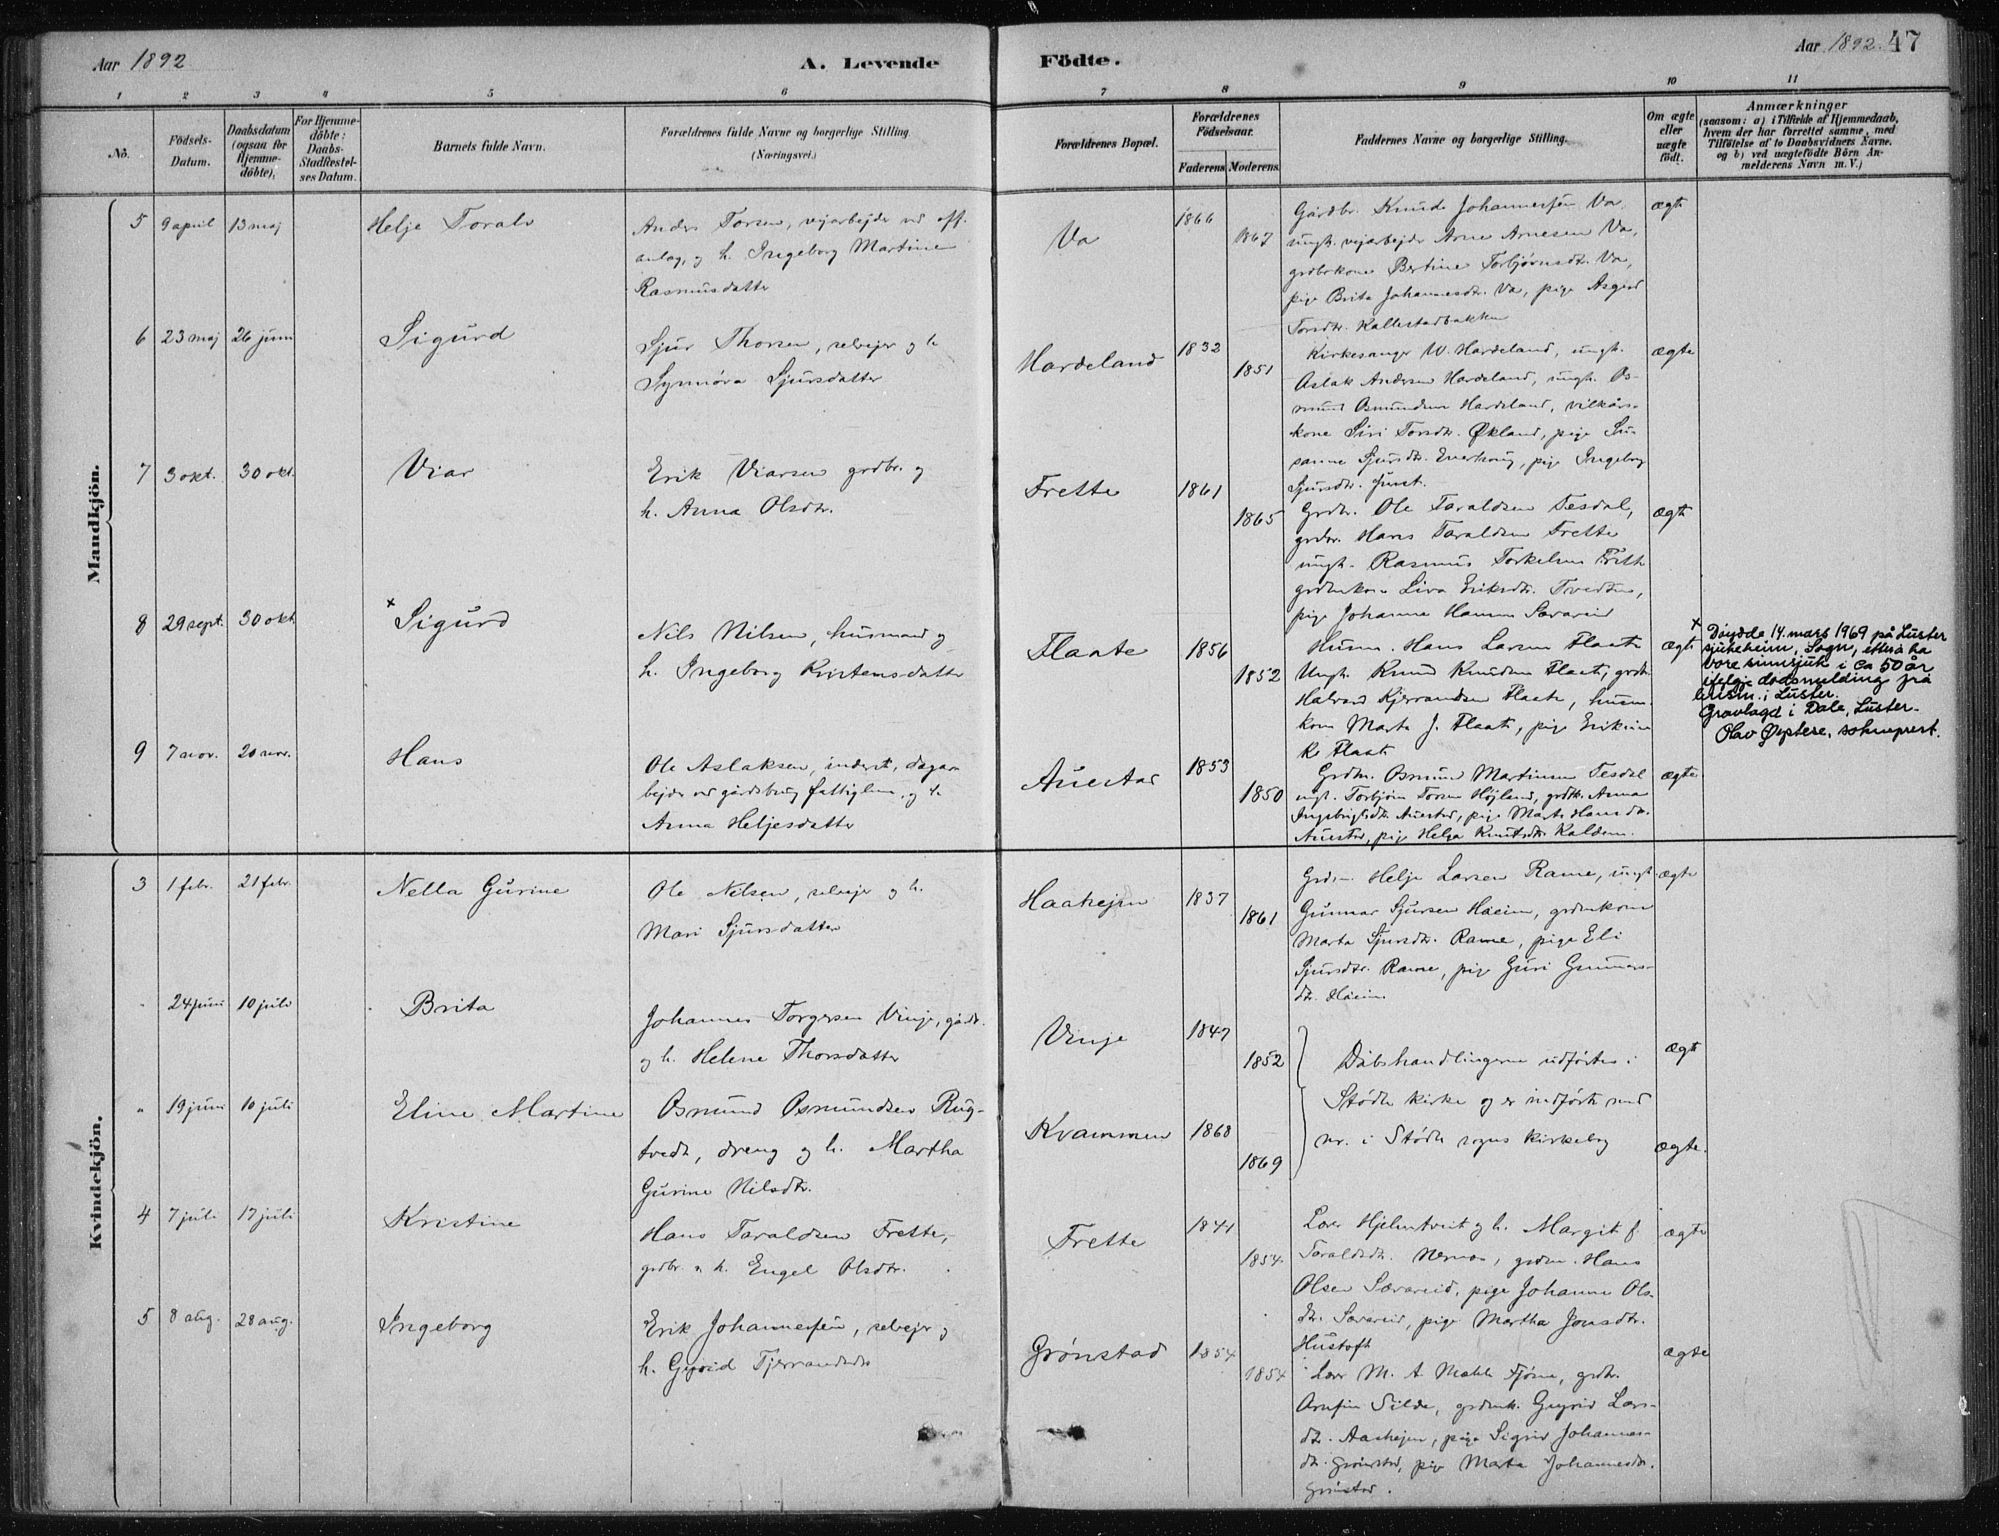 Aar 1892
A. Levende
Födte.
Aar 1892. 47
1 2 3 4 5 6 7 8 9 10 11
No.
Födsels-
Datum.
Daabsdatum
(ogsaa for
Hjemme-
döbte).
For Hjemme-
döbte:
Daabs-
Stadfæstel-
ses Datum.
Barnets fulde Navn.
Forældrenes fulde Navne og borgerlige Stilling.
(Næringsvei.)
Forældrenes Bopæl.
Forældrenes
Födselsaar.
Faderens. Moderens.
Faddernes Navne og borgerlige Stilling.
Om ægte
eller
uægte
født.
Anmærkninger
(saasom: a) i Tilfælde af Hjemmedaab,
hvem der har forrettet samme, med
Tilföielse af to Daabsvidners Navne.
og b) ved uægtefödte Börn An-
melderens Navn m. V.)
Mandkjön.
5 9 april 13 maj
Helje Toralv
Anders Torsen, vejarbejder ved off.
anlag, og h. Ingeborg Martine
Rasmusdatter
Va
1866
1867
Gårdbr. Knud Johannessen Va,
ungk. vejarbejder Arne Arnesen Va,
grdbrkone Bertine Torbjørnsdt. Va,
pige Brita Johannesdt. Va, pige Asgerd
Torsdtr. Kallestadbakken
ægte
6 23 maj 26 juni
Sigurd
Sjur Thorsen, selvejer og h.
Synnøva Sjursdatter
Hardeland
1832
1851
Kirkesanger W. Hardeland, ungk.
Aslak Andersen Hardeland, ungk. Os-
mund Osmundsen Hardeland, vilkårs-
kone Siri Torsdtr. Økland, pige Su-
sanne Sjursdtr. Enerhoug, pige Ingeborg
Sjursdtr.
ægte
7 3 okt. 30 okt.
Viar
Erik Viarsen grdbr. og
h. Anna Olsdtr.
Frette
1861
1865
Grdbr. Ole Taraldsen Tesdal,
grdbr. Hans Taraldsen Frette
ungk. Rasmus Torkelsen Frette
grdmkone Liva Eriksdtr. Tvedten,
pige Johanne Hansen Særareid
ægte
8 29 sept. 30 okt
× Sigurd
Nils Nilsen, husmand og
h. Ingeborg Kristensdatter
Flaate
1856
1852
Husm. Hans Larsen Flaate
Ungk. Knud Knudsen Flaate, grdb.
Halvard Kjerrandsen Flaate, husm.
kone Marta J. Flaate, pige Erikine
K. Flaate
ægte
× Døydde 14. mars 1969 på Luster
sjukeheim, Sogn, etter å ha
vore sinnsjuk i ca 50 år
ifølgje dødsmelding frå
lensm. i Luster.
Gravlagd i Dale, Luster.
Olav sokneprest.
9 7 nov. 20 nov.
Hans
Ole Aslaksen, inderst, dagar-
bejder ved gårdsbrug fattiglem, og h.
Anna Heljesdatter
Auestad
1853
1850
Grdm. Osmund Martinsen Tesdal
ungk. Torbjørn Torsen Højland, grdkr. Anna
Ingebrigtsdtr. Auestad, pige Marta Hansdtr.
Auestad, pige Helga Knutsdtr. Kaldem.
ægte
Kvindekjön.
3 1 febr. 21 febr.
Nella Gurine
Ole Nelsen, selvejer og h.
Mari Sjursdatter
Haahejm
1837
1861
Grdm. Helje Larsen Rame, ungk.
Gunnar Sjursen Håeim, grdmkone
Marta Sjursdtr. Rame, pige Eli
Sjursdtr. Rame, pige Guri Gunnars-
dtr. Håeim.
ægte
" 24 juni 10 juli
Brita
Johannes Torgersen Vinje, gårdbr.
og h. Helene Thorsdatter
Vinje
1847
1852
Dåbshandlingerne udførtes i
Stødle kirke og er indførte med
nr. i Stødle sogns kirkebog
ægte
" 19 juni 10 juli
Eline Martine
Osmund Osmundsen Rug-
tvedt, dreng og h. Martha
Gurine Nilsdtr.
Kvammen
1868
1869
ægte.
4 7 juli 17 juli
Kristine
Hans Taraldsen Frette,
grdbr. og h. Engel Olsdtr.
Frette
1841
1854
Lærer Hjelmtveit og h. Margit f.
Taraldsdt. Nernes, grdm. Hans
Olsen Særareid, pige Johanne Ols-
dtr. Særareid, pige Martha Jonsdtr.
Hustoft
ægte
5 8 aug. 28 aug.
Ingeborg
Erik Johannessen, selvejer og
h. Gyrid Tjerrandsdtr
Grønstad
1854
1854
Lærer M. A. Mehle Fjøsne, grdbr.
Arnfin Silde, grdmk. Guyrid Lars-
dtr. Aahejm, pige Sigrid Johannes-
dtr. Grønstad, pige Marta Johannesdtr.
Grønstad.
ægte